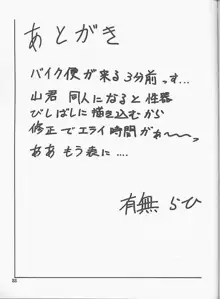 あとがき
バイク便が来る3分前っす...
山君 同人になると性器
びしばしに描き込むから
修正でエライ時間がぁ〜〜っ
ああ もう表に....
有無らひ